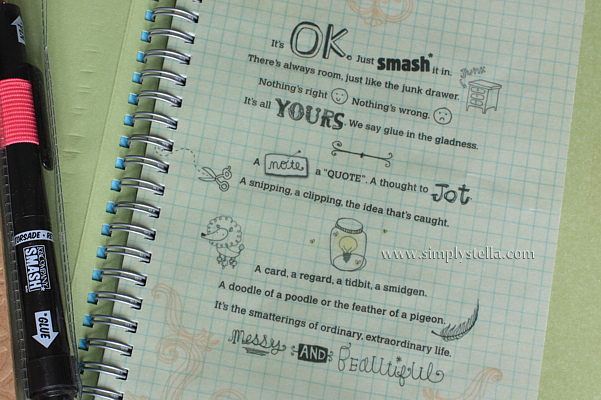 It's OK. Just smash* it in.
There's always room, just like the junk drawer.
Junk
Nothing's right Nothing's wrong.
It's all YOURS. We say glue in the gladness.
A note, a "QUOTE". A thought to Jot.
A snipping, a clipping, the idea that's caught.
www.simplystella.com
A card, a regard, a tidbit, a smidgen.
A doodle of a poodle or the feather of a pigeon.
It's the smatterings of ordinary, extraordinary life.
Messy AND Beautiful
K&COMPANY
SMASH!
GLUE